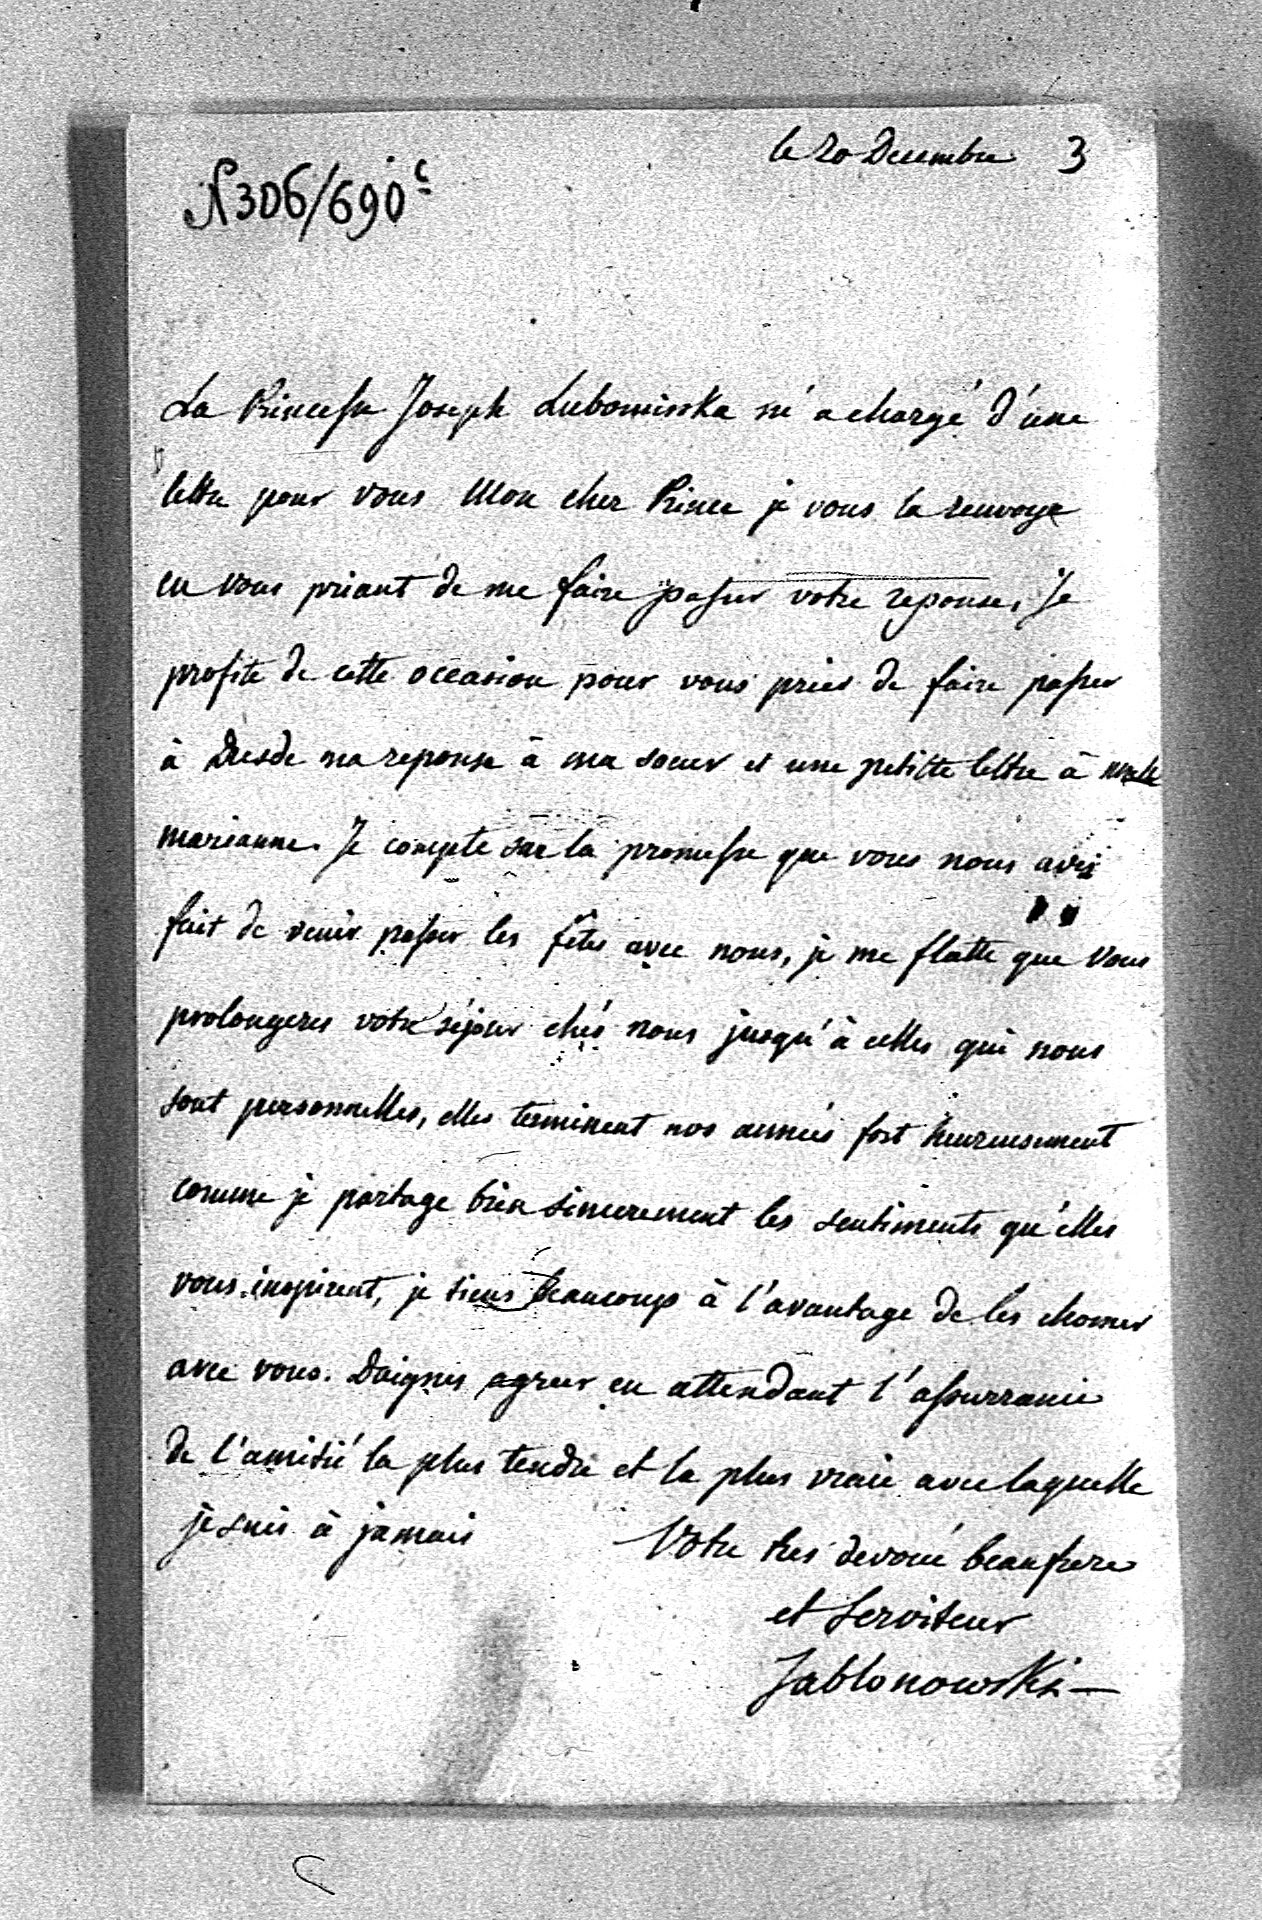 le 20 Decembre 3
N 306/690 c
La Princesse Joseph Lubomirska m'a chargé d'une
lettre pour vous Mon cher Prince je vous la renvoye
en vous priant de me faire passer votre reponse, Je
profite de cette occasion pour vous prier de faire passer
à Dresde ma reponse à ma soeur et une petitte lettre à
marianne. Je compte sur la promesse que vous nous avés
fait de venir passer les fêtes avec nous, je me flatte que vous
prolongeres votre séjour chés nous jusqu'à celles qui nous
sont personnelles, elles terminent nos années fort heureusement
comme je partage bien sincerement les sentiments qu'elles
vous inspirent, je tiens beaucoup à l'avantage de les chomer
avec vous. Daignes agreer en attendant l'assurrance
de l'amitié la plus tendre et la plus vraie avec laquelle
je suis à jamais Votre tres devoué beaufrere
et Serviteur
Jablonowski